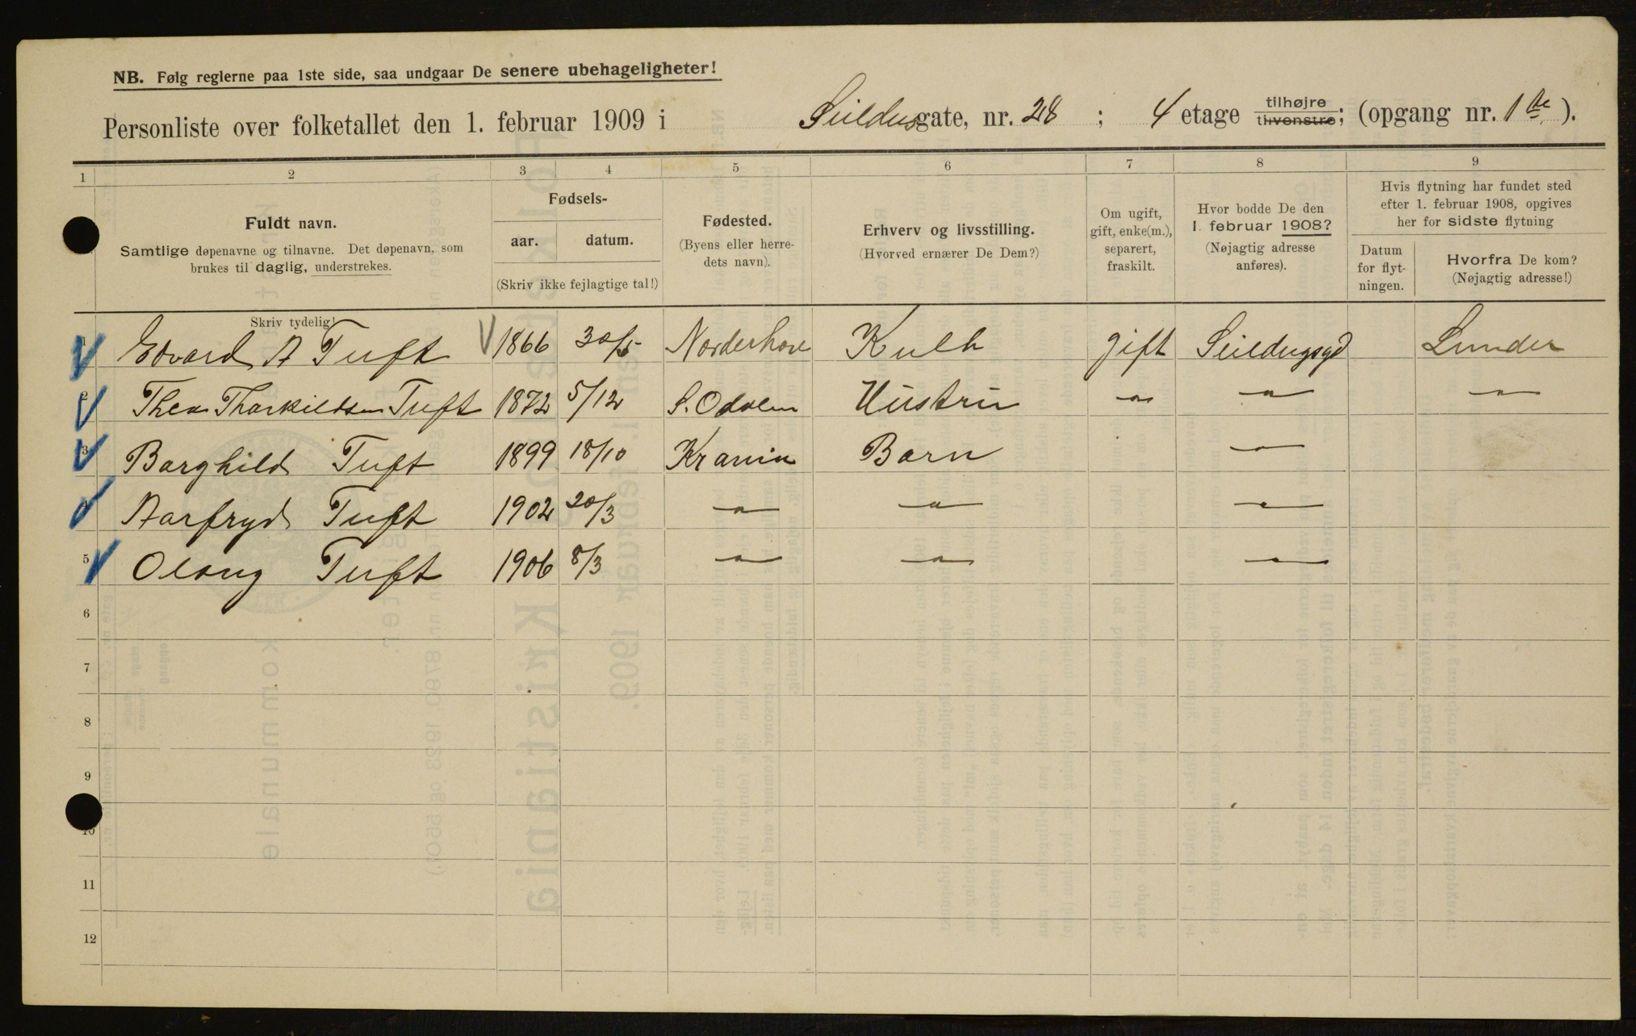 NB. Følg reglerne paa 1ste side, saa undgaar De senere ubehageligheter!
Personliste over folketallet den 1. februar 1909 i Seildusgate, nr. 28 ; 4 etage tilhøjre tilvenstre; (opgang nr. 1ste ).
1 2 3 4 5 6 7 8 9
Fuldt navn.
Samtlige døpenavne og tilnavne. Det døpenavn, som
brukes til daglig, understrekes.
Skriv tydelig!
Fødsels-
aar. datum.
(Skriv ikke fejlagtige tal!)
Fødested.
(Byens eller herre-
dets navn).
Erhverv og livsstilling.
(Hvorved ernærer De Dem?)
Om ugift,
gift, enke(m.),
separert,
fraskilt.
Hvor bodde De den
1. februar 1908?
(Nøjagtig adresse
anføres).
Hvis flytning har fundet sted
efter 1. februar 1908, opgives
her for sidste flytning
Datum
for flyt-
ningen.
Hvorfra De kom?
(Nøjagtig adresse!)
1 Edvard A Tuft 1866 30/5 Norderhove Kulh gift Seildugsgd Lunder
2 Thea Thorkildsen Tuft 1872 5/12 S. Odalen Hustru " " "
3 Borghild Tuft 1899 18/10 Krania Barn "
4 Aarfryd Tuft 1902 20/3 " " "
5 Olaug Tuft 1906 8/3 " " "
6
7
8
9
10
11
12